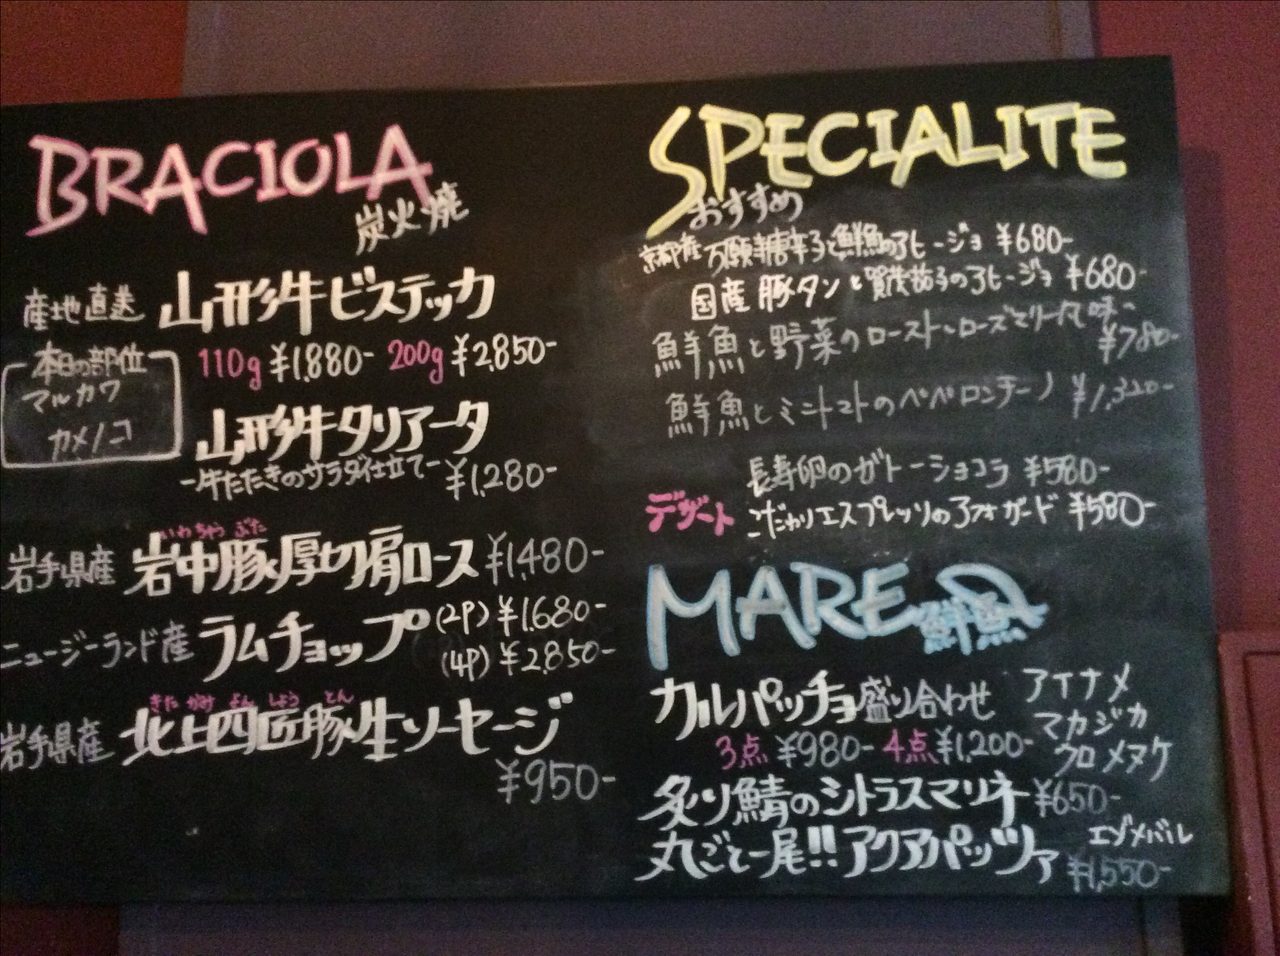 BRACIOLA
炭火焼
産地直送 山形牛ビステッカ
110g ¥1,880- 200g ¥2,850-
本日の部位
マルカワ
カメノコ
山形牛タリアータ
-牛たたきのサラダ仕立て- ¥1,280-
いわちゅう ぶた
岩手県産 岩中豚厚切肩ロース ¥1,480-
ニュージーランド産 ラムチョップ (2P) ¥1,680-
(4P) ¥2,850-
きた かみ よん しょう とん
岩手県産 北上四匠豚生ソーセージ
¥950-
SPECIALITE
おすすめ
京都産 万願寺唐辛子と鮮魚のアヒージョ ¥680-
国産豚タンと賀茂茄子のアヒージョ ¥680-
鮮魚と野菜のロースト-ローズマリー風味-
¥780-
鮮魚とミニトマトのペペロンチーノ ¥1,320-
長寿卵のガトーショコラ ¥580-
デザート こだわりエスプレッソのアフォガード ¥580-
MARE 鮮魚
カルパッチョ盛り合わせ
3点 ¥980- 4点 ¥1,200-
アイナメ
マカジカ
クロメヌケ
炙り鯖のシトラスマリネ ¥650-
丸ごと一尾!! アクアパッツァ エゾメバル
¥1,550-